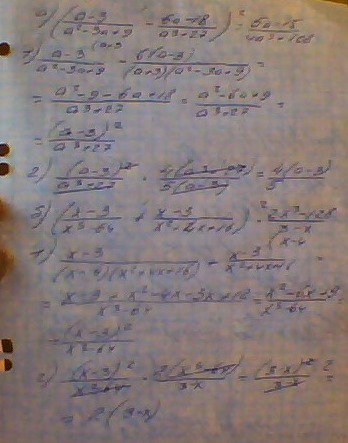 а) (a-3/a²-3a+9 - 6a-18/a³+27) : 5a-15/4a³+108
1) a-3/a²-3a+9 - 6(a-3)/(a+3)(a²-3a+9) =
= a²-9-6a+18/a³+27 = a²-6a+9/a³+27 =
= (a-3)²/a³+27
2) (a-3)²/a³+27 · 4(a³+27)/5(a-3) = 4(a-3)/5
б) (x-3/x³-64 + x-3/x²+4x+16) · 2x³-128/3-x
1) x-3/(x-4)(x²+4x+16) + x-3/x²+4x+16 =
= x-3+x²-4x-3x+12/x³-64 = x²-6x+9/x³-64 =
= (x-3)²/x³-64
2) (x-3)²/x³-64 · 2(x³-64)/3-x = (3-x)²·2/3-x =
= 2(3-x)